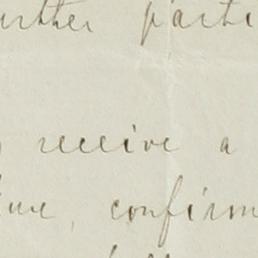 urther parti
receive a
ine, confirm